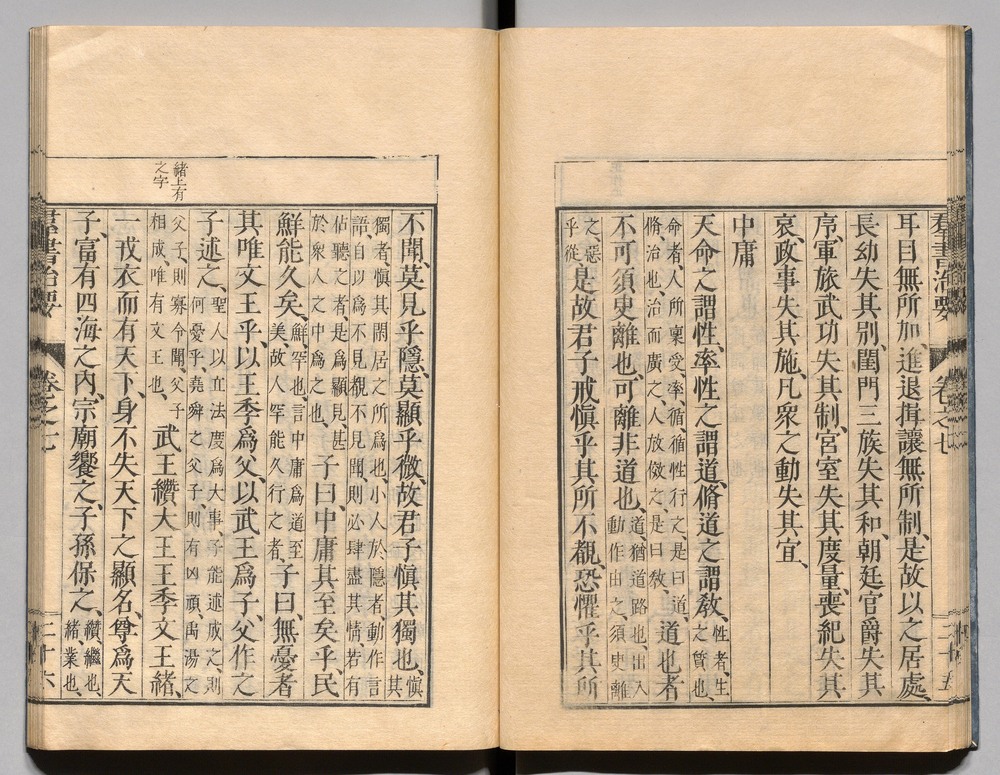 耳目無所加、進退揖讓無所制、是故以之居處、
長幼失其別、閨門三族失其和、朝廷官爵失其
序、軍旅武功失其制、宮室失其度量、喪紀失其
哀、政事失其施、凡衆之動失其宜、
中庸
天命之謂性、率性之謂道、脩道之謂敎、性者、生之質也、
命者、人所稟受、率、循、循性行之、是曰道、脩、治也、治而廣之、人放傚之、是曰敎、道也者
不可須臾離也、可離非道也、道、猶道路也、出入動作由之、須臾離
之、惡乎從是故君子戒愼乎其所不覩、恐懼乎其所
群書治要 卷之七 二十五
緖上有
之字
不聞、莫見乎隱、莫顯乎微、故君子愼其獨也、愼其
獨者、愼其閒居之所爲也、小人於隱者、動作言語、自以爲不見覩不見聞、則必肆盡其情、若有
佔聽之者、是爲顯見、甚於衆人之中爲之也、子曰、中庸其至矣乎、民
鮮能久矣、鮮、罕也、言中庸爲道至美、故人罕能久行之者、子曰、無憂者
其唯文王乎、以王季爲父、以武王爲子、父作之
子述之、聖人以立法度爲大事、子能述成之、則何憂乎、堯舜之父子、則有凶頑、禹湯之
父子、則寡令聞、父子相成、唯有文王也、武王纘大王王季文王緖、
一戎衣而有天下、身不失天下之顯名、尊爲天
子、富有四海之內、宗廟饗之、子孫保之、纘、繼也、緖、業也、
群書治要 卷之七 二十六